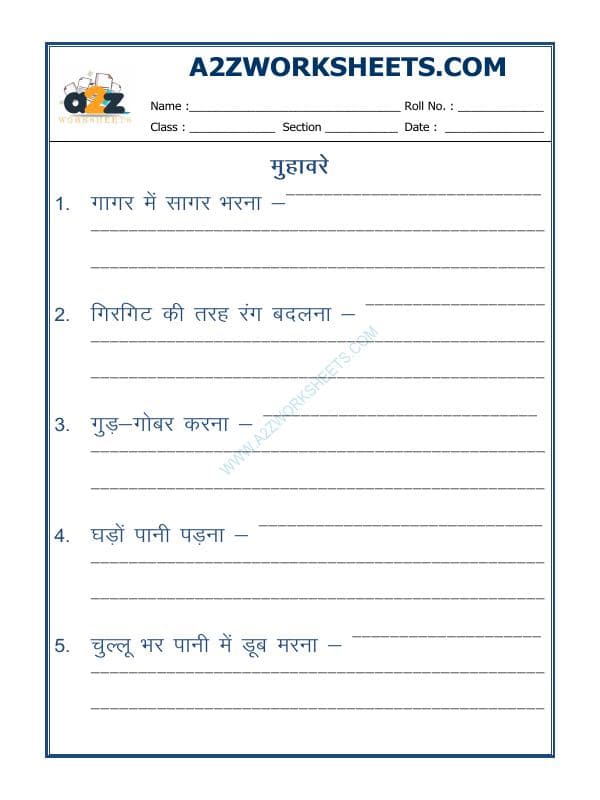 A2ZWORKSHEETS.COM
a2z
WORKSHEETS
Name :______________________________ Roll No. : ______________
Class : ______________ Section ____________ Date : ________________
मुहावरे
1. गागर में सागर भरना –___________________________
2. गिरगिट की तरह रंग बदलना – ___________________
3. गुड़–गोबर करना – _____________________________
4. घड़ों पानी पड़ना – ______________________________
5. चुल्लू भर पानी में डूब मरना – ____________________
WWW.A2ZWORKSHEETS.COM